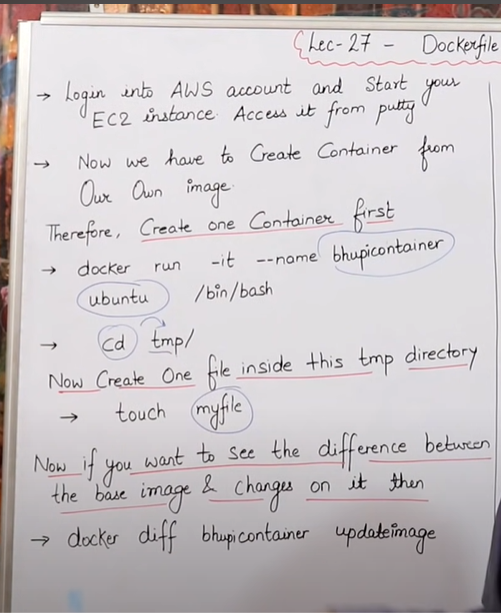 Lec-27 - Dockerfile
→ Login into AWS account and Start your
EC2 instance. Access it from putty
→ Now we have to Create Container from
Our Own image.
Therefore, Create one Container first
→ docker run -it --name bhupicontainer
ubuntu /bin/bash
→ cd tmp/
Now Create One file inside this tmp directory
→ touch myfile
Now if you want to see the difference between
the base image & changes on it then
→ docker diff bhupicontainer updateimage